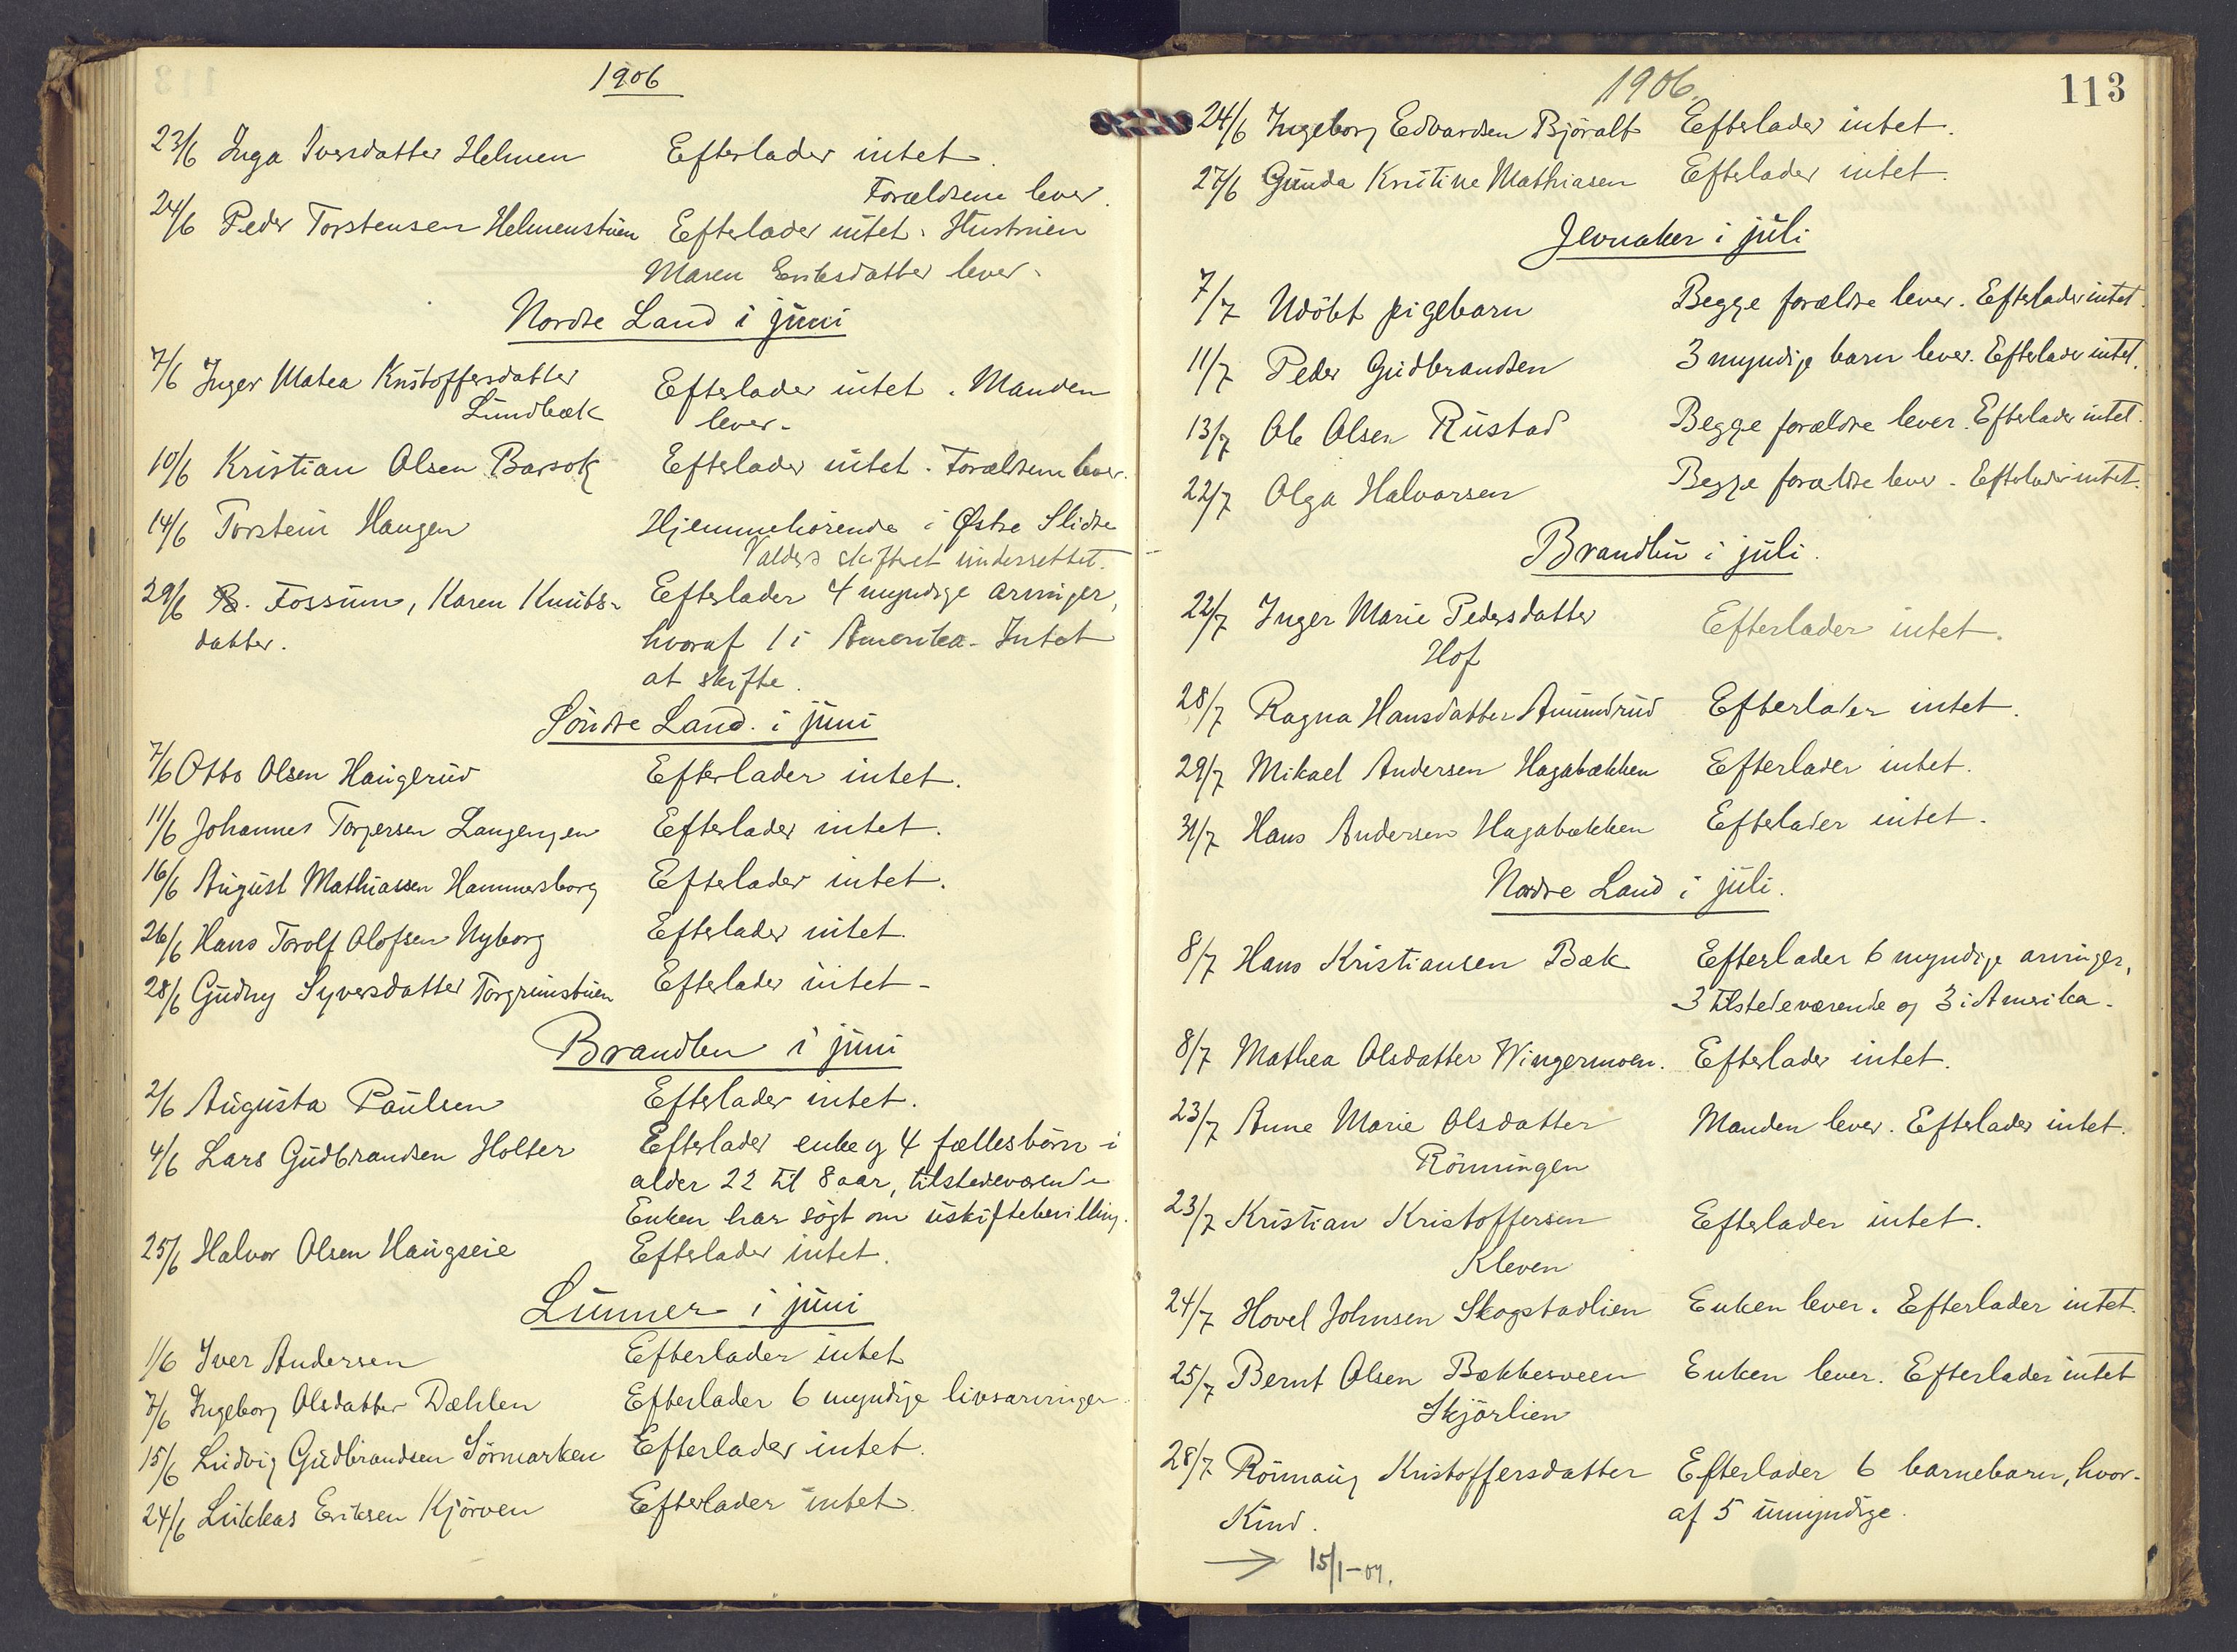 1906
23/6 Inga Iversdatter Helmen Efterlader intet.
Forældrene lever.
24/6 Peder Torstensen Helmenstuen Efterlader intet. Hustruen
Maren Eriksdatter lever.
Nordre Land i juni
7/6 Inger Matea Kristoffersdatter
Lundbæk
Efterlader intet. Manden
lever.
10/6 Kristian Olsen Barsok Efterlader intet. Forældrene lever.
14/6 Torstein Haugen Hjemmehørende i Østre Slidre
Valders skifteret underrettet.
29/6 B. Fossum, Karen Knuts-
datter.
Efterlader 4 myndige arvinger,
hvoraf 1 i Amerika. Intet
at skifte.
Söndre Land i juni
7/6 Otto Olsen Haugerud Efterlader intet.
11/6 Johannes Torgersen Langengen Efterlader intet.
16/6 August Mathiassen Hammersborg Efterlader intet.
26/6 Hans Torolf Olofsen Nyborg Efterlader intet.
28/6 Gudny Syversdatter Torgrimstuen Efterlader intet.
Brandbu i juni
2/6 Augusta Paulsen Efterlader intet.
4/6 Lars Gudbrandsen Holter Efterlader enke og 4 fællesbörn i
alder 22 til 8 aar, tilstedeværende
Enken har sögt om uskiftebevilling.
25/6 Halvor Olsen Haugseie Efterlader intet.
Lunner i juni
1/6 Iver Andersen Efterlader intet
7/6 Ingeborg Olsdatter Dæhlen Efterlader 6 myndige livsarvinger.
15/6 Ludvig Gudbrandsen Sörmarken Efterlader intet.
24/6 Lukkas Eriksen Kjörven Efterlader intet.
1906.
113
24/6 Ingeborg Edvardsen Björalt Efterlader intet.
27/6 Gunda Kristine Mathiasen Efterlader intet.
Jevnaker i juli
7/7 Udöbt pigebarn Begge forældre lever. Efterlader intet.
11/7 Peder Gudbrandsen 3 myndige barn lever. Efterlader intet.
13/7 Ole Olsen Rustad Begge forældre lever. Efterlader intet.
22/7 Olga Halvorsen Begge forældre lever. Efterlader intet.
Brandbu i juli.
22/7 Inger Marie Pedersdatter
Hof
Efterlader intet.
28/7 Ragna Hansdatter Amundrud Efterlader intet.
29/7 Mikael Andersen Hagabækken Efterlader intet.
31/7 Hans Andersen Hagabækken Efterlader intet.
Nordre Land i juli.
8/7 Hans Kristiansen Bæk Efterlader 6 myndige arvinger,
3 tilstedeværende og 3 i Amerika.
8/7 Mathea Olsdatter Wingermoen. Efterlader intet.
23/7 Anne Marie Olsdatter
Rönningen
Manden lever. Efterlader intet.
23/7 Kristian Kristoffersen
Kleven
Efterlader intet.
24/7 Hovel Johnsen Skogstadlien Enken lever. Efterlader intet.
25/7 Bernt Olsen Bækkesveen
Skjörlien
Enken lever. Efterlader intet
28/7 Rönnaug Kristoffersdatter
Kind.
Efterlader 6 barnebarn, hvor-
af 5 umyndige.
→ 15/1-07.